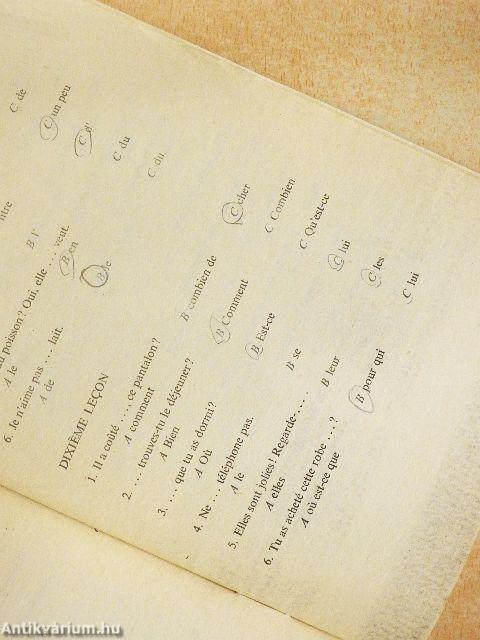 C de
C un peu
C d'
C du
C du
B l'
au poisson? Oui, elle ... veut.
A le B en
B le
6. Je n'aime pas .... lait.
A de
DIXIÈME LEÇON
1. Il a coûté ...., ce pantalon?
A comment B combien de C cher
2. ... trouves-tu le déjeuner?
A Bien B Comment C Combien
3. ... que tu as dormi?
A Où B Est-ce C Qu'est-ce
4. Ne ... téléphone pas.
A le B se C lui
5. Elles sont jolies! Regarde-....
A elles B leur C les
6. Tu as acheté cette robe ...?
A où est-ce que B pour qui C lui
Antikvárium.hu